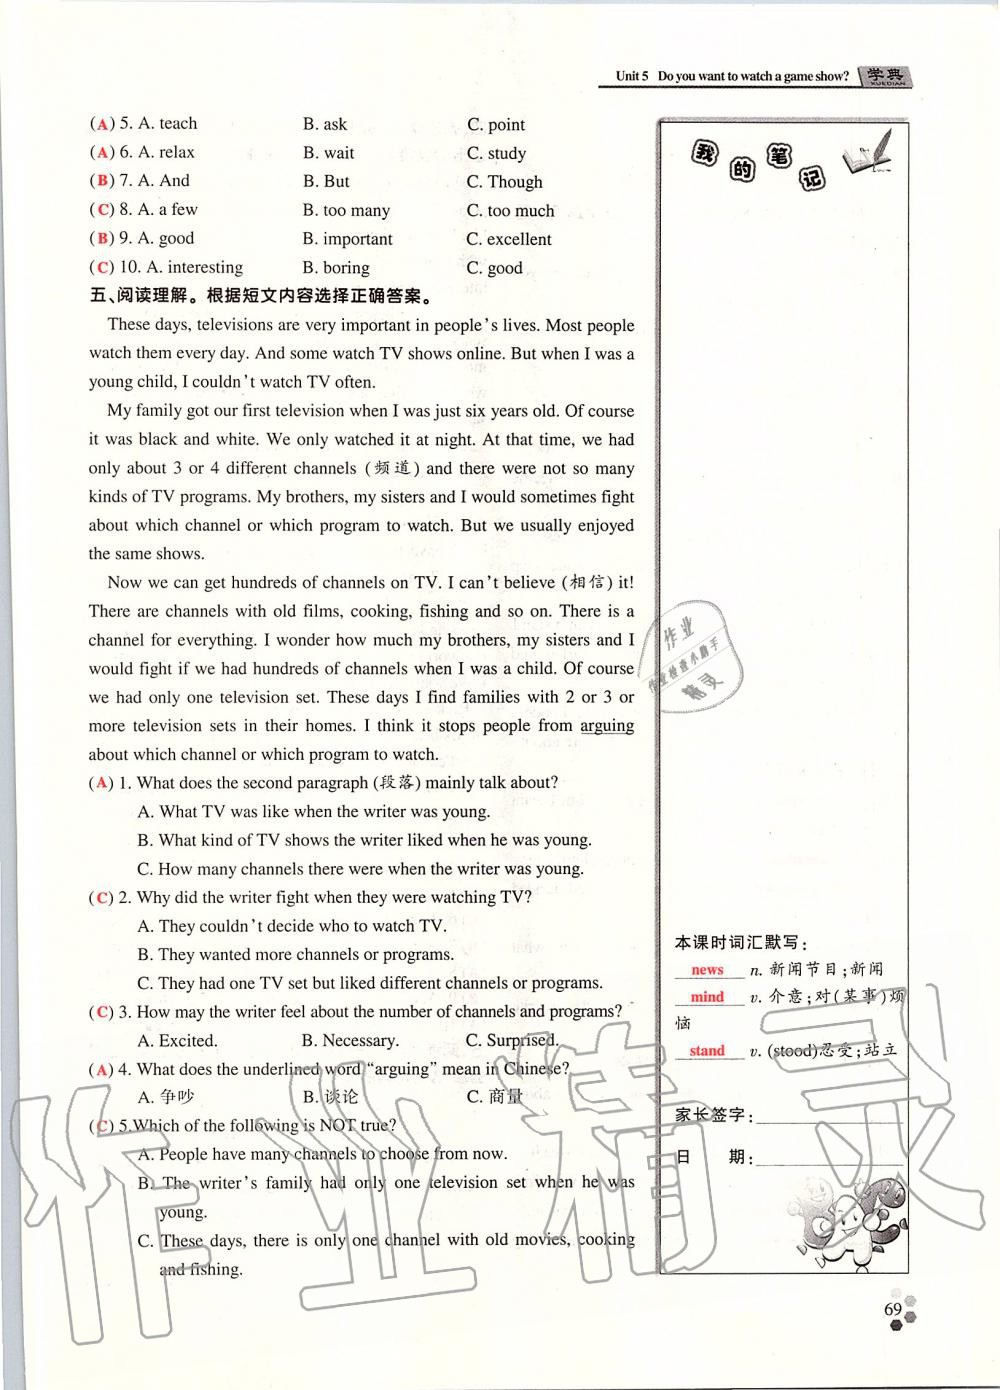 Unit 5 Do you want to watch a game show? 学典
XUEDIAN
(A) 5. A. teach B. ask C. point
(A) 6. A. relax B. wait C. study
(B) 7. A. And B. But C. Though
(C) 8. A. a few B. too many C. too much
(B) 9. A. good B. important C. excellent
(C) 10. A. interesting B. boring C. good
五、阅读理解。根据短文内容选择正确答案。
These days, televisions are very important in people's lives. Most people
watch them every day. And some watch TV shows online. But when I was a
young child, I couldn't watch TV often.
My family got our first television when I was just six years old. Of course
it was black and white. We only watched it at night. At that time, we had
only about 3 or 4 different channels (频道) and there were not so many
kinds of TV programs. My brothers, my sisters and I would sometimes fight
about which channel or which program to watch. But we usually enjoyed
the same shows.
Now we can get hundreds of channels on TV. I can't believe (相信) it!
There are channels with old films, cooking, fishing and so on. There is a
channel for everything. I wonder how much my brothers, my sisters and I
would fight if we had hundreds of channels when I was a child. Of course
we had only one television set. These days I find families with 2 or 3 or
more television sets in their homes. I think it stops people from arguing
about which channel or which program to watch.
(A) 1. What does the second paragraph (段落) mainly talk about?
A. What TV was like when the writer was young.
B. What kind of TV shows the writer liked when he was young.
C. How many channels there were when the writer was young.
(C) 2. Why did the writer fight when they were watching TV?
A. They couldn't decide who to watch TV.
B. They wanted more channels or programs.
C. They had one TV set but liked different channels or programs.
(C) 3. How may the writer feel about the number of channels and programs?
A. Excited. B. Necessary. C. Surprised.
(A) 4. What does the underlined word "arguing" mean in Chinese?
A. 争吵 B. 谈论 C. 商量
(C) 5.Which of the following is NOT true?
A. People have many channels to choose from now.
B. The writer's family had only one television set when he was
young.
C. These days, there is only one channel with old movies, cooking
and fishing.
我的笔记
本课时词汇默写:
news n. 新闻节目;新闻
mind v. 介意;对(某事)烦
恼
stand v. (stood)忍受;站立
家长签字:
日 期:
69
作业
作业检查小助手
精灵
作业精灵